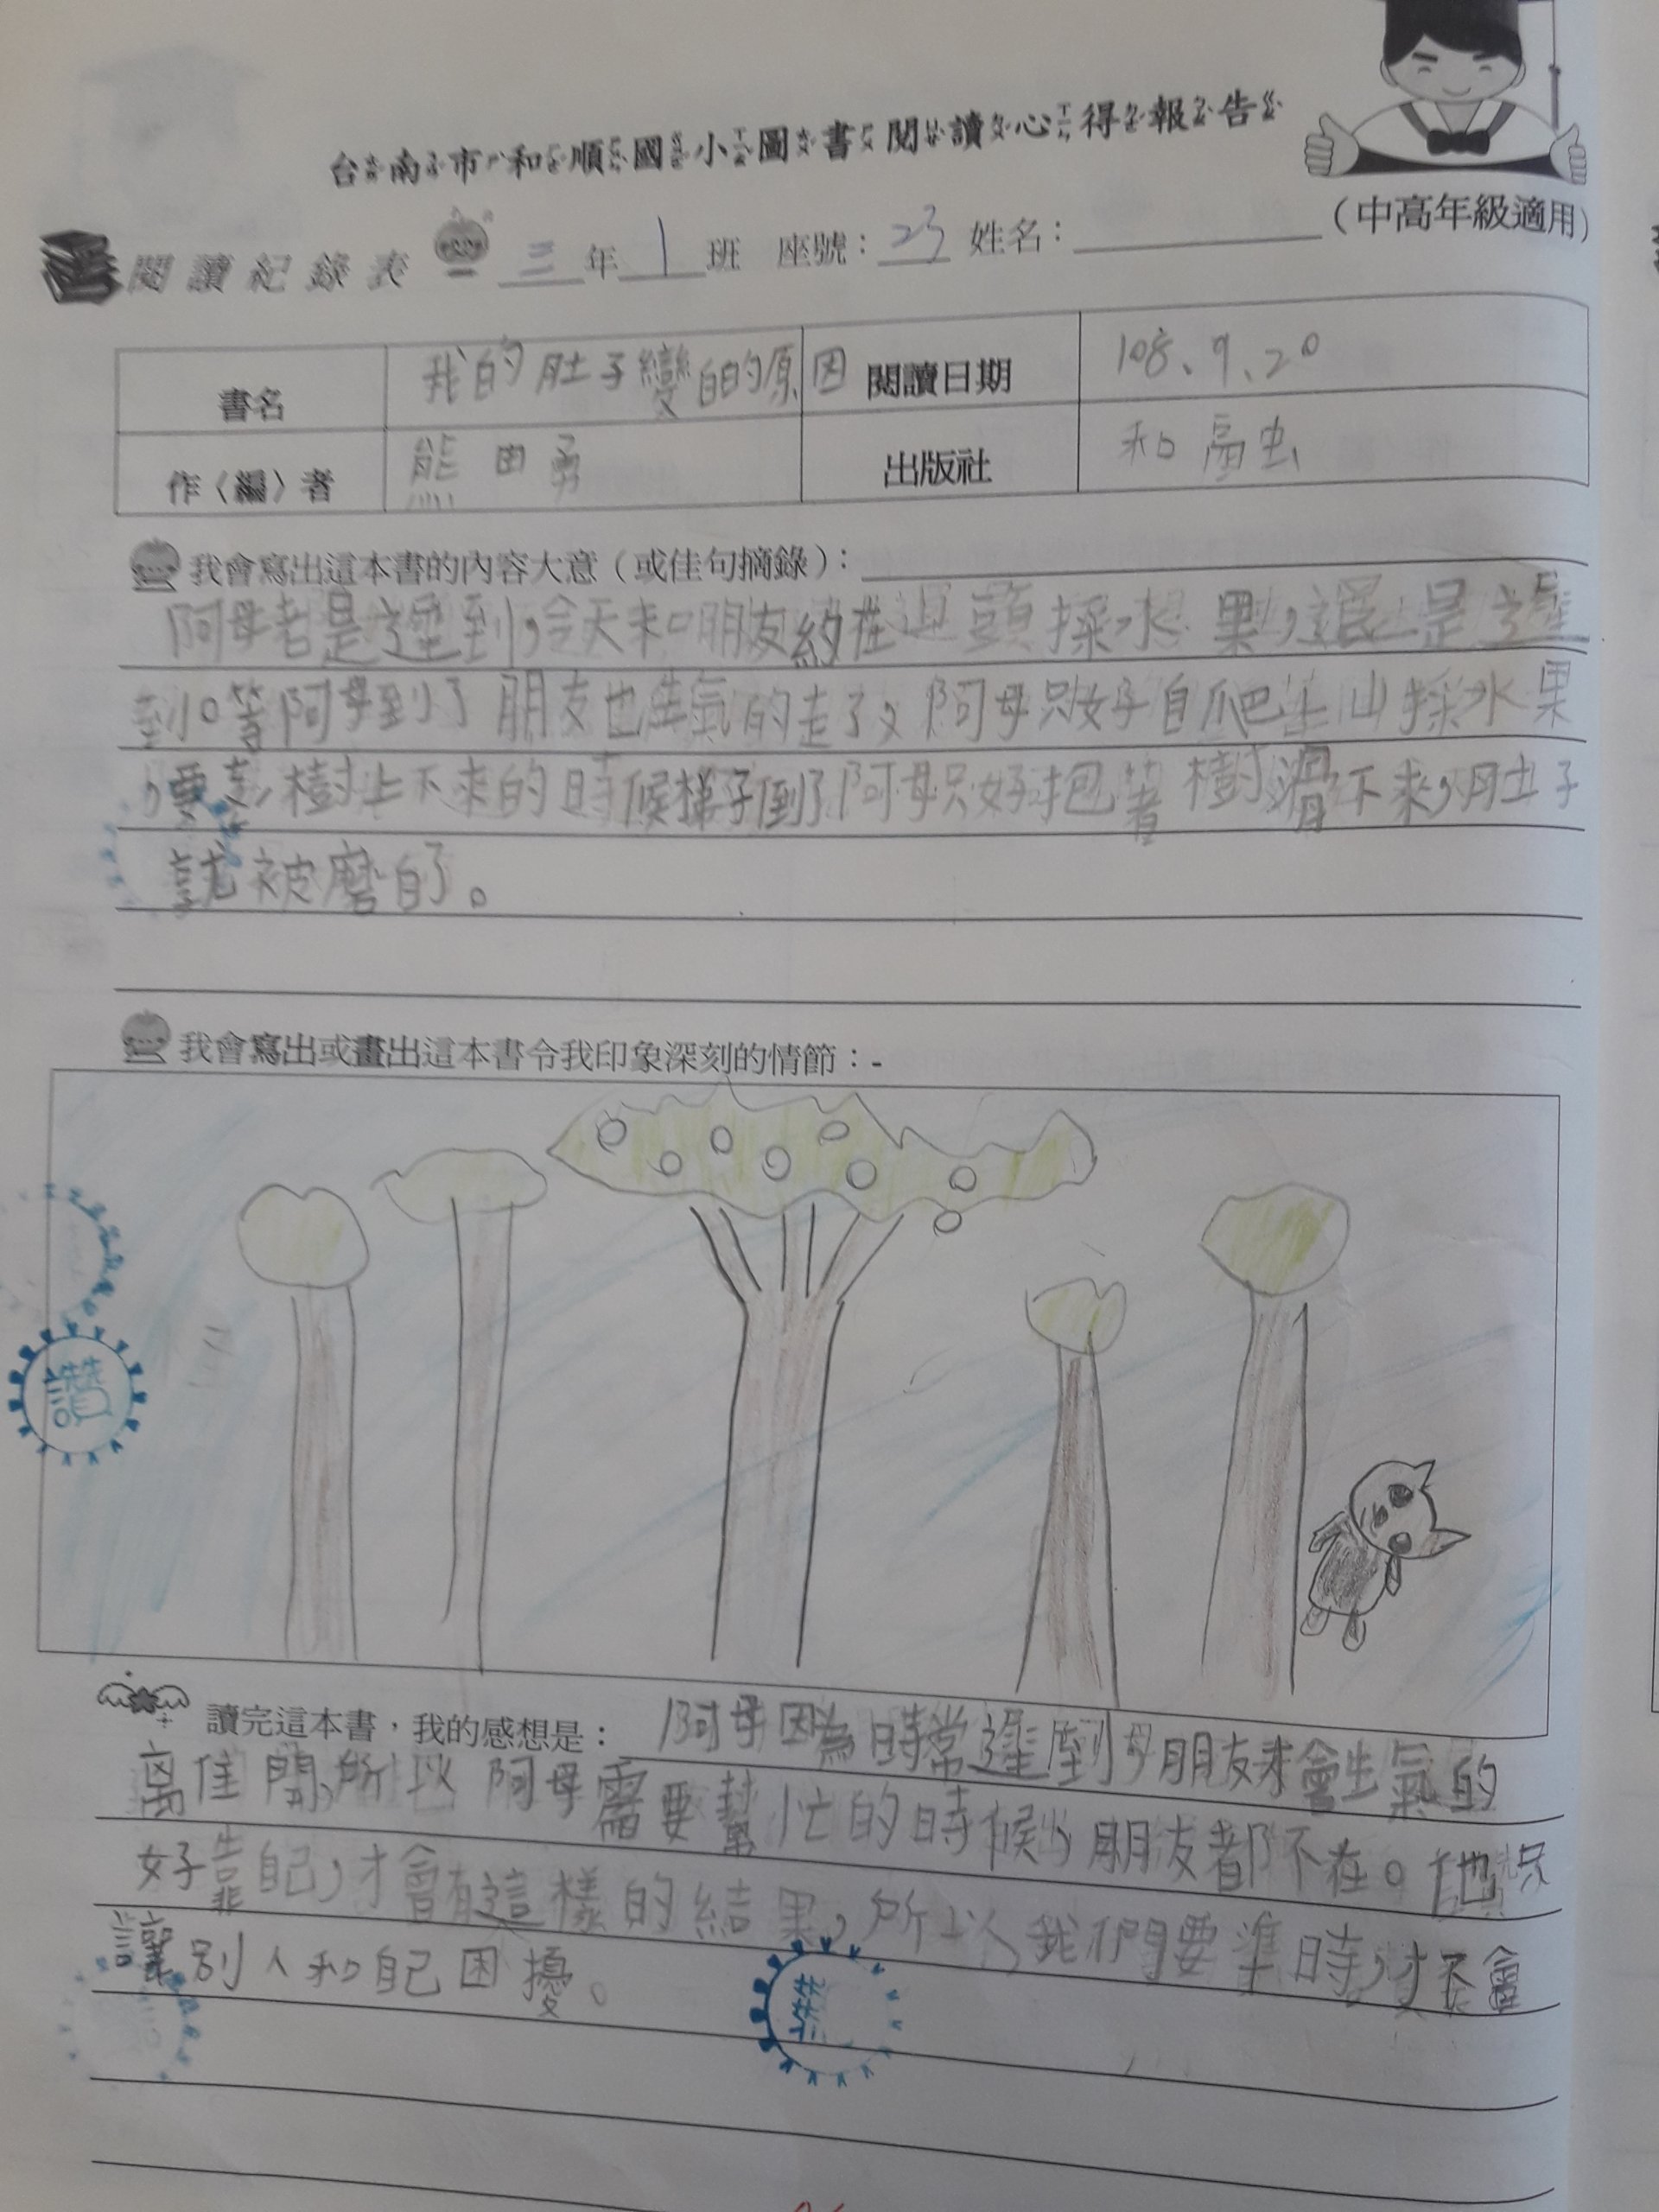 台南市和順國小圖書閱讀心得報告
(中高年級適用)
閱讀紀錄表 三年1班 座號：23 姓名：
書名 我的肚子變白的原因 閱讀日期 108、9、20
作〈編〉者 熊田勇 出版社 和融
我會寫出這本書的內容大意（或佳句摘錄）：
阿母老是遲到，今天和朋友約在 頭採水果，還是遲
到。等阿母到了朋友也生氣的走了，阿母只好自爬上山採水果
，要 樹上下來的時候梯子倒了阿母只好抱著樹滑下來，肚子
就被磨白了。
我會寫出或畫出這本書令我印象深刻的情節：-
讚
讀完這本書，我的感想是：阿母因為時常遲到，朋友 會生氣的
离 開，所以阿母需要幫忙的時候，朋友都不在。他只
好靠自己，才會有這樣的結果，所以我們要準時，才不會
讓別人和自己困擾。